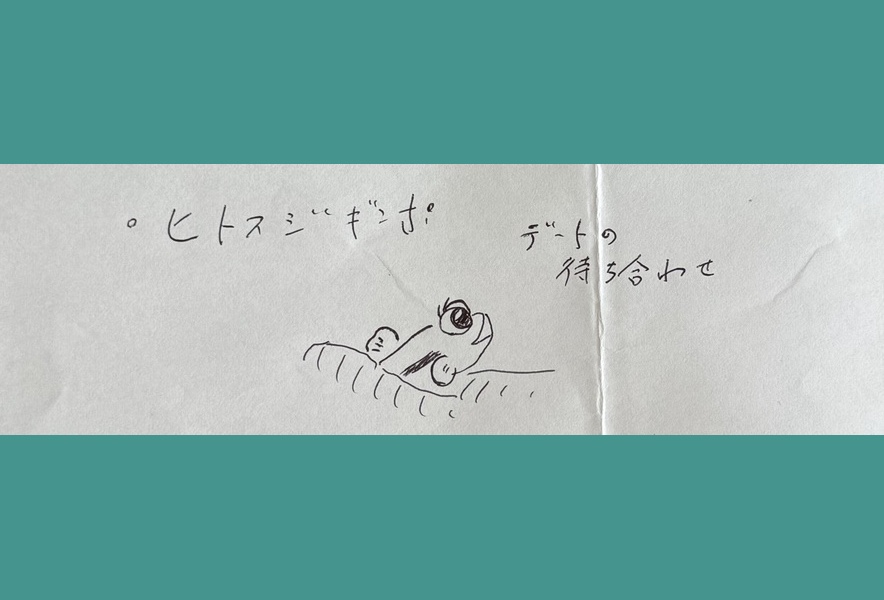 。ヒトスジギンポ
デートの
待ち合わせ